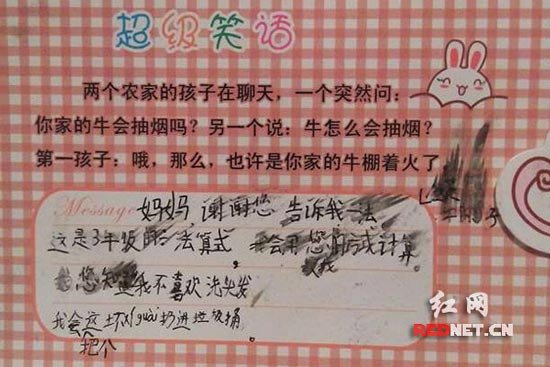 超级笑话
两个农家的孩子在聊天，一个突然问：
你家的牛会抽烟吗？另一个说：牛怎么会抽烟？
第一孩子：哦，那么，也许是你家的牛棚着火了
Message 妈妈 谢谢您 告诉我
这是3年级的 法算式。我会用您的方式计算。
您知道我不喜欢洗头发
我会这坏guài扔进垃圾桶
把个
红网
REDNET.CN